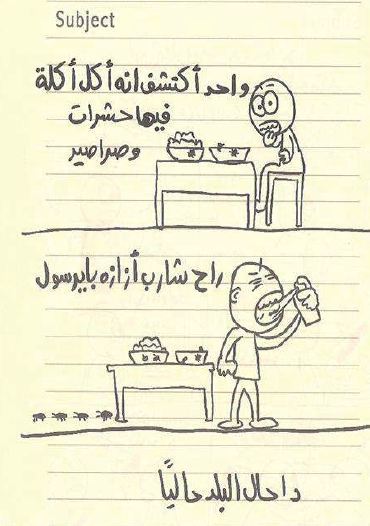 Subject
واحد أكتشف انه أكل أكلة
فيها حشرات
وصراصير
راح شارب أزازه بايرسول
دا حال البلد حالياً